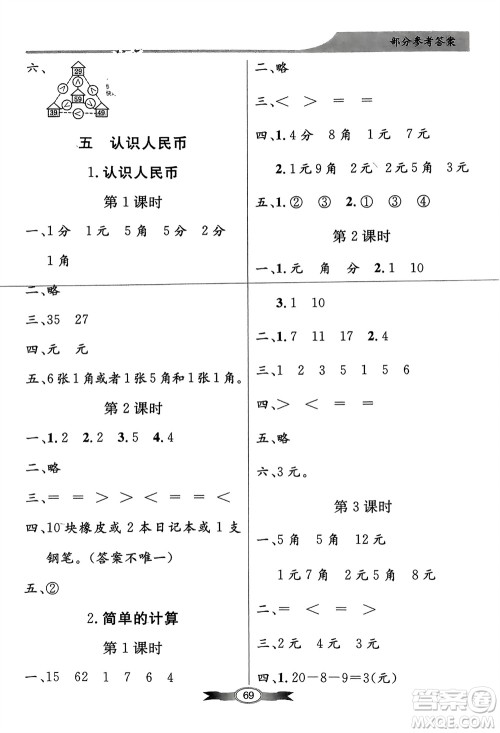 部分参考答案
六、
29
39
49
五 认识人民币
1.认识人民币
第1课时
一、1分 1元 5角 5分 2分
1角
二、略
三、35 27
四、元 元
五、6张1角或1张5角和1张1角。
第2课时
一、1.2 2.2 3.5 4.4
二、略
三、= = > > > <
四、10块橡皮或2本日记本或1支
钢笔。(答案不唯一)
五、②
2.简单的计算
第1课时
一、15 62 1 7 4
二、略
三、< > = =
四、1.4分 8角 1元 6元
2.1元9角 2元 2元 5元
五、1.① ② ③ 2.① ③
第2课时
一、1.元 角 分 2.1 10
3.1 10
二、1.7 2.4
三、1 2 3 5 1 5 6
四、> < = >
五、略
六、3元。
第3课时
一、5角 5角 12元
1元 7元 2元
二、> < = =
三、略
四、1.20-8-9=3(元)
69